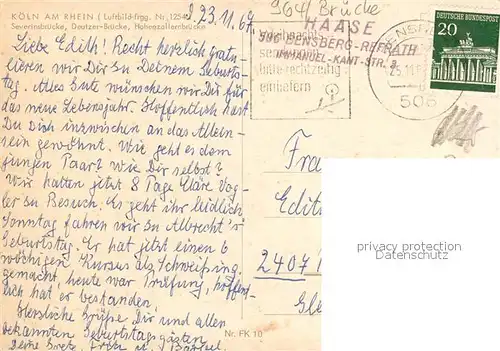 KÖLN AM RHEIN (Luftbild-frgg. Nr. 12542
Severinsbrücke, Deutzer-Brücke, Hohenzollernbrücke
23.11.67
964 Brücke
HAASE
506 BENSBERG-REFRATH
IMMANUEL-KANT-STR.
bitte rechtzeitig
einliefern
506
DEUTSCHE BUNDESPOST
20
Liebe Edith! Recht herzlich gratu-
lieren wir Dir zu Deinem Geburts-
tag. Alles Gute wünschen wir Dir für
das neue Lebensjahr. Hoffentlich hast
Du Dich inzwischen an das Allein-
sein gewöhnt. Wie geht es dem
jungen Paar? Wie Dir selbst?
Wir hatten jetzt 8 Tage Kläre Vog-
ler zu Besuch. Es geht ihr leidlich.
Sonntag fahren wir zu Albrecht's
Geburtstag. Er hat jetzt einen 6
wöchigen Kursus als Schweißing.
gemacht, heute war Prüfung, hoffent-
lich hat er bestanden
Herzliche Grüße Dir und allen
bekannten Geburtstagsgästen
Deine
Fra
Edit
2407
Nr. FK 10
privacy protection
Privatsphärenschutz